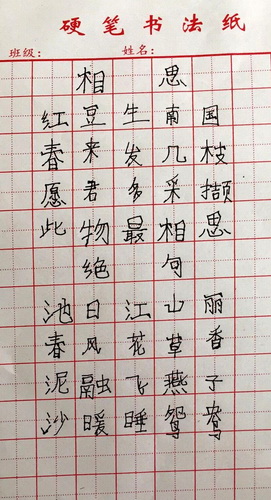 硬笔书法纸
班级： 姓名：
相思
红豆生南国
春来发几枝
愿君多采撷
此物最相思
绝句
池日江山丽
春风花草香
泥融飞燕子
沙暖睡鸳鸯